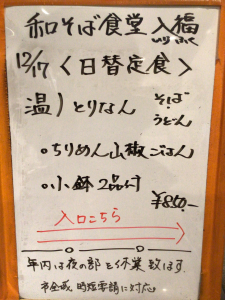 和そば食堂 入福
いりふく
12/17 〈日替定食〉
温）とりなん そば
うどん
○ちりめん山椒ごはん
○小鉢2品付
¥850-
入口こちら
年内は夜の部を休業致します。
時短要請に対応